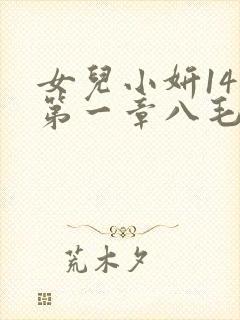 女兒小妍14
第一章八毛
荒木夕